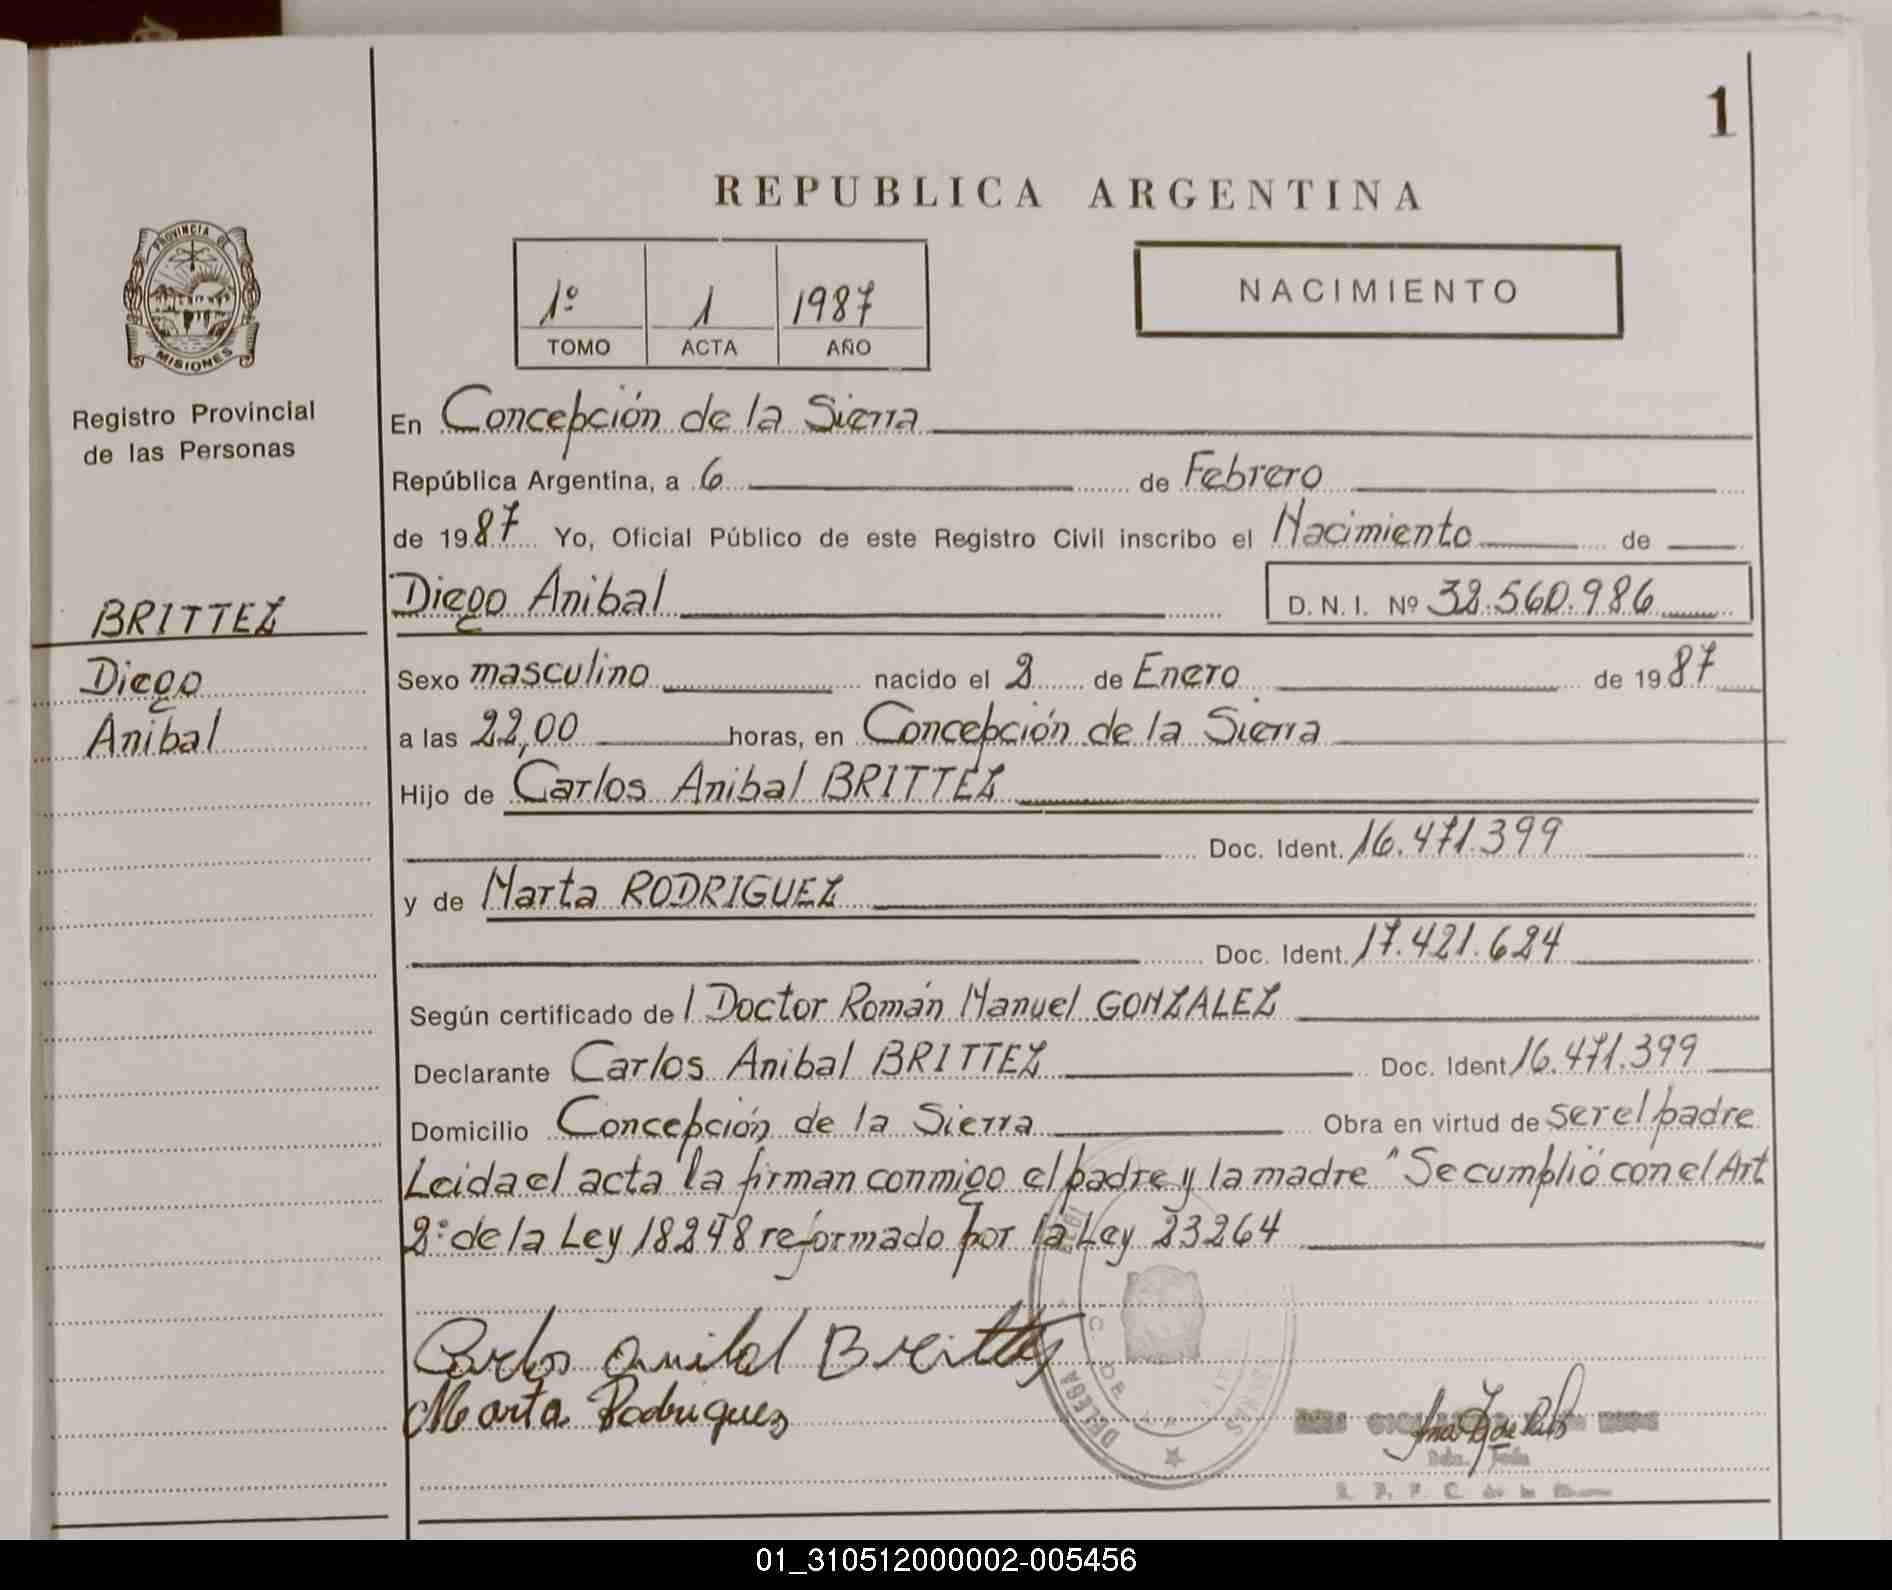 1
REPUBLICA ARGENTINA
PROVINCIA DE
MISIONES
Registro Provincial
de las Personas
1º 1 1987
TOMO ACTA AÑO
NACIMIENTO
En Concepción de la Sierra
República Argentina, a 6 de Febrero
de 1987 Yo, Oficial Público de este Registro Civil inscribo el Nacimiento de
BRITTEZ
Diego
Anibal
Diego Anibal D. N. I. Nº 32.560.986
Sexo masculino nacido el 2 de Enero de 1987
a las 22,00 horas, en Concepción de la Sierra
Hijo de Carlos Anibal BRITTEZ
Doc. Ident. 16.471.399
y de Marta RODRIGUEZ
Doc. Ident. 17.421.624
Según certificado de l Doctor Román Manuel GONZALEZ
Declarante Carlos Anibal BRITTEZ Doc. Ident 16.471.399
Domicilio Concepción de la Sierra Obra en virtud de ser el padre
Leida el acta la firman conmigo el padre y la madre "Se cumplió con el Art
2º de la Ley 18248 reformado por la Ley 23264
Carlos Anibal Brittez
Marta Rodriguez
DELEGA
C. DE
01_310512000002-005456